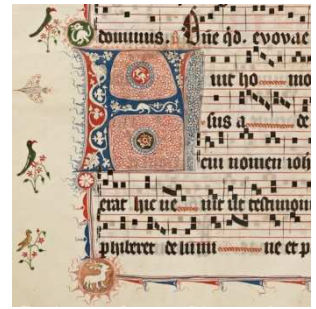 dominus. a Dñe qd. evovae
F uit ho mo
sus a de
cui nomen ioh
erat hic ue nit ut testimoni
phiberet de lumi ne et p